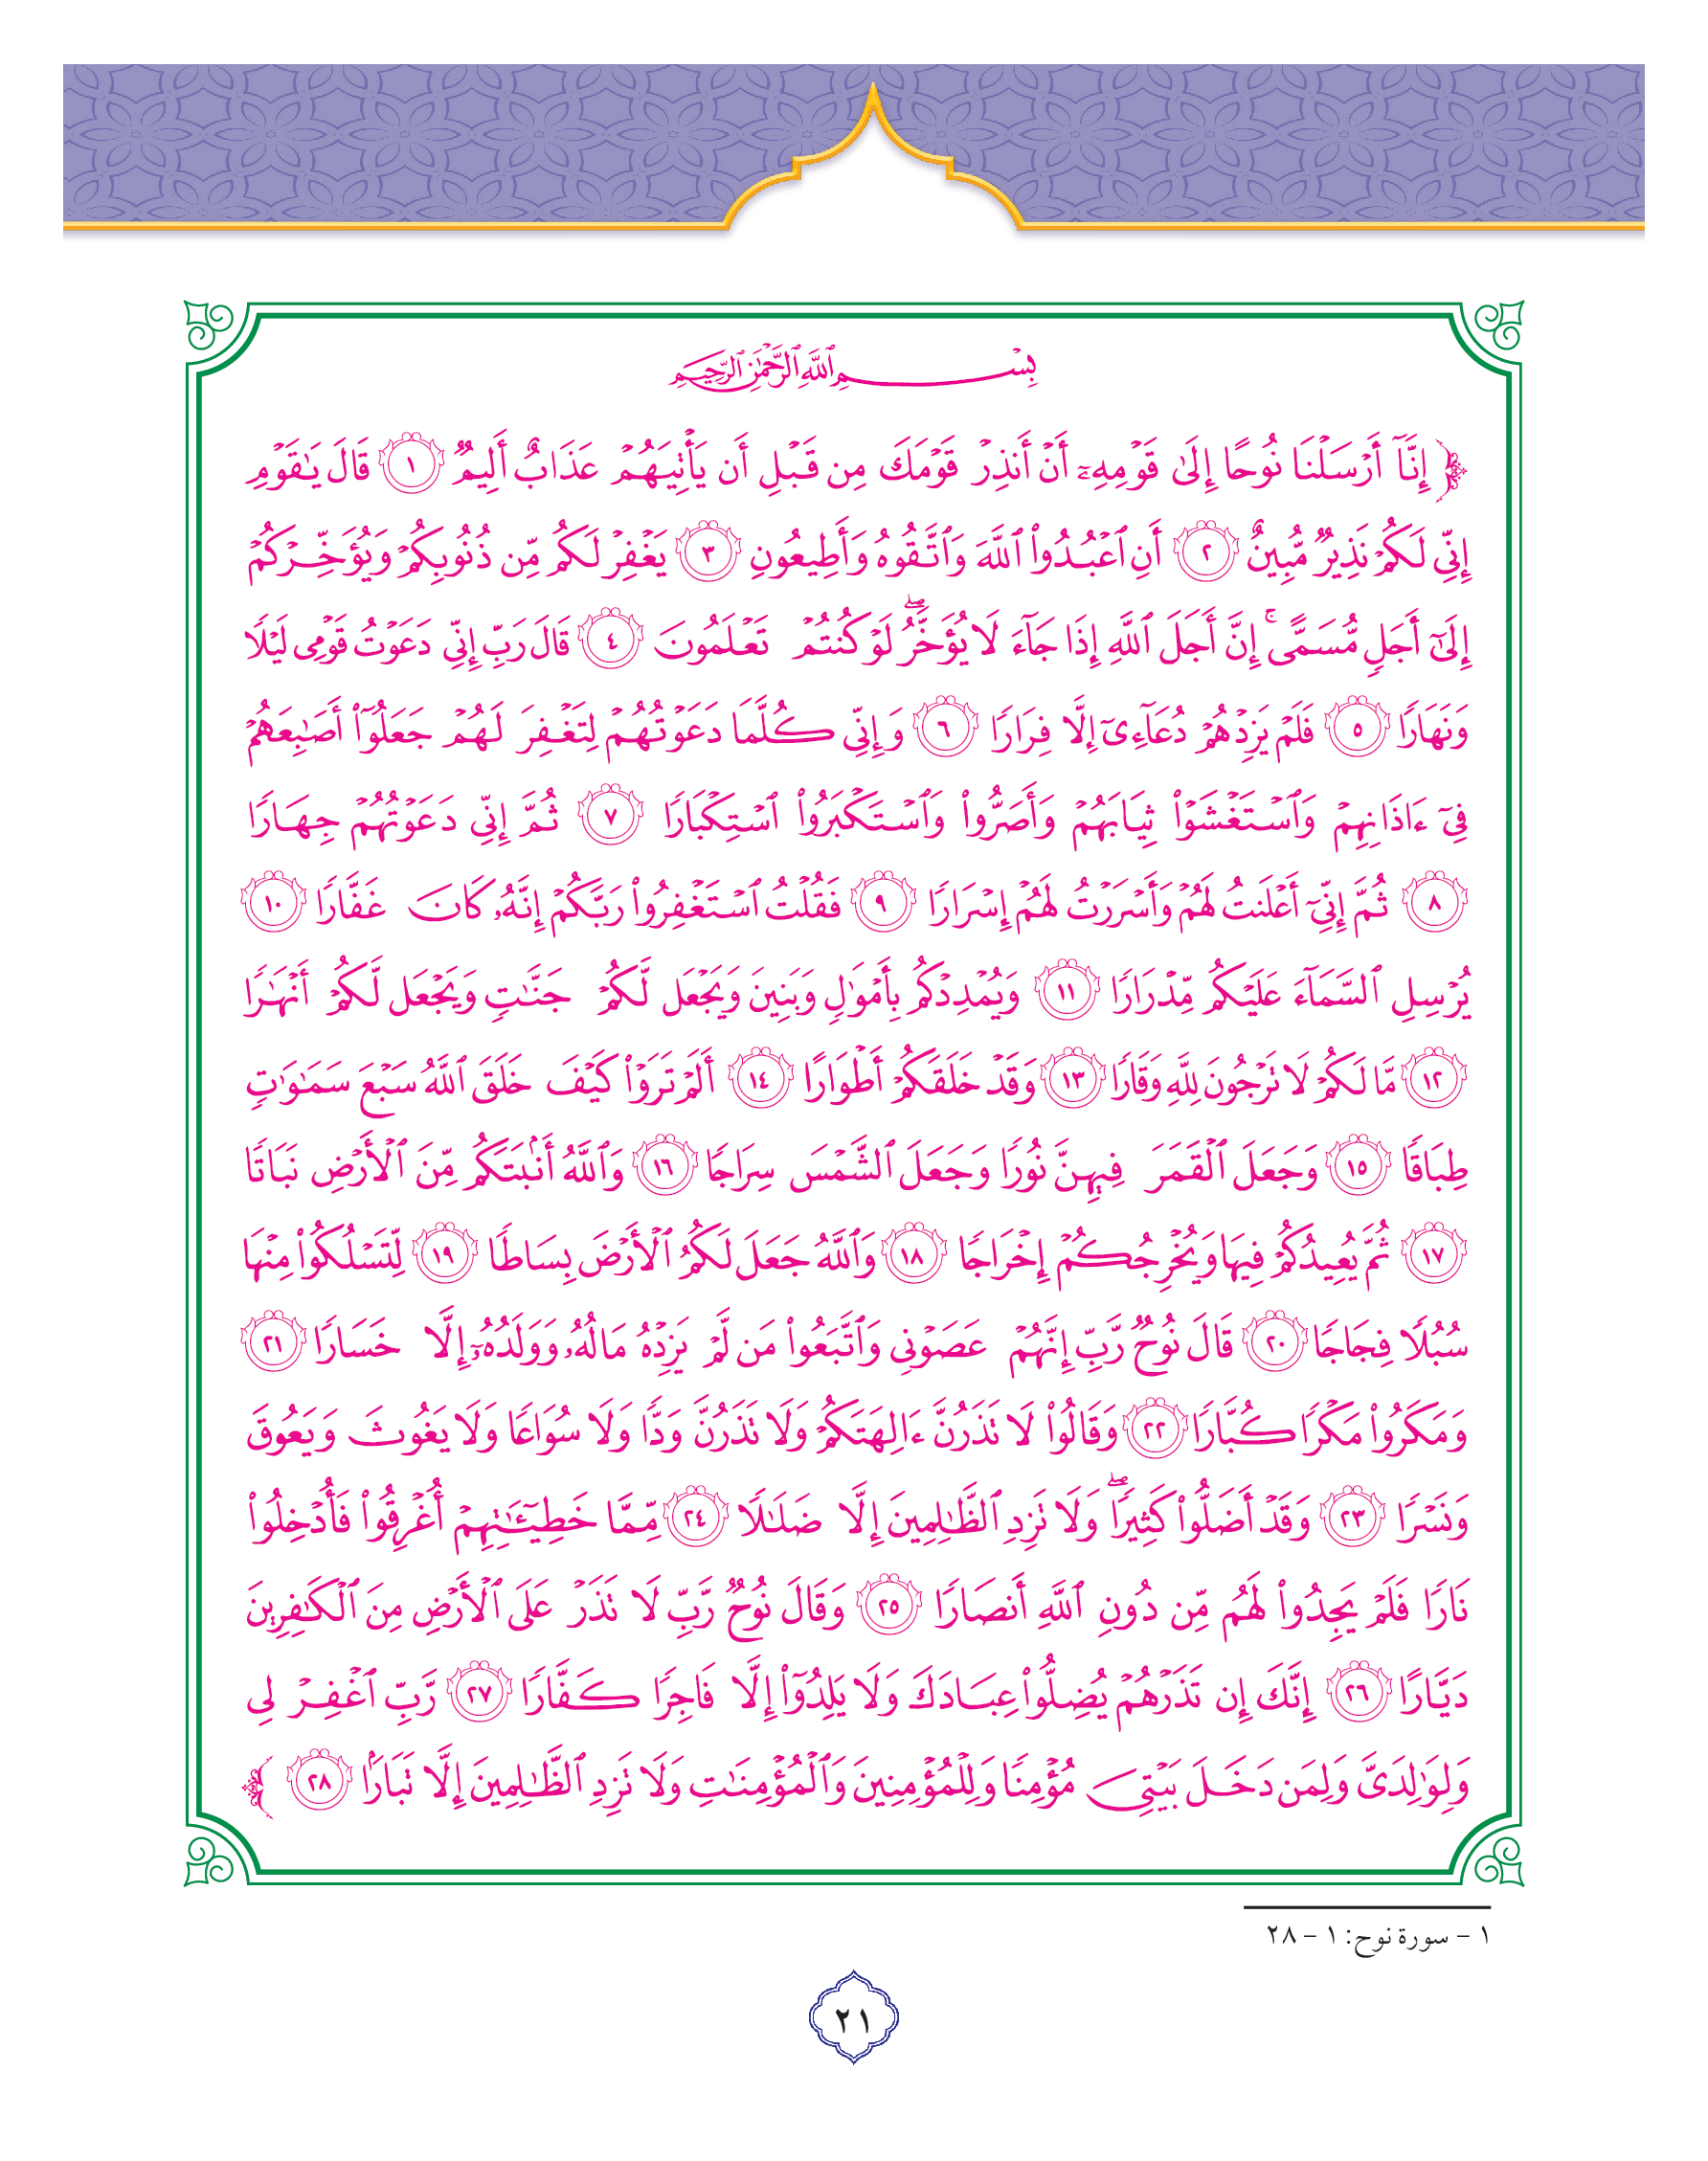 بِسْمِ ٱللَّهِ ٱلرَّحْمَٰنِ ٱلرَّحِيمِ
﴿ إِنَّآ أَرْسَلْنَا نُوحًا إِلَىٰ قَوْمِهِۦٓ أَنْ أَنذِرْ قَوْمَكَ مِن قَبْلِ أَن يَأْتِيَهُمْ عَذَابٌ أَلِيمٌ ١ قَالَ يَٰقَوْمِ
إِنِّى لَكُمْ نَذِيرٌ مُّبِينٌ ٢ أَنِ ٱعْبُدُوا۟ ٱللَّهَ وَٱتَّقُوهُ وَأَطِيعُونِ ٣ يَغْفِرْ لَكُم مِّن ذُنُوبِكُمْ وَيُؤَخِّرْكُمْ
إِلَىٰٓ أَجَلٍ مُّسَمًّى ۚ إِنَّ أَجَلَ ٱللَّهِ إِذَا جَآءَ لَا يُؤَخَّرُ ۖ لَوْ كُنتُمْ تَعْلَمُونَ ٤ قَالَ رَبِّ إِنِّى دَعَوْتُ قَوْمِى لَيْلًا
وَنَهَارًا ٥ فَلَمْ يَزِدْهُمْ دُعَآءِىٓ إِلَّا فِرَارًا ٦ وَإِنِّى كُلَّمَا دَعَوْتُهُمْ لِتَغْفِرَ لَهُمْ جَعَلُوٓا۟ أَصَٰبِعَهُمْ
فِىٓ ءَاذَانِهِمْ وَٱسْتَغْشَوْا۟ ثِيَابَهُمْ وَأَصَرُّوا۟ وَٱسْتَكْبَرُوا۟ ٱسْتِكْبَارًا ٧ ثُمَّ إِنِّى دَعَوْتُهُمْ جِهَارًا
٨ ثُمَّ إِنِّىٓ أَعْلَنتُ لَهُمْ وَأَسْرَرْتُ لَهُمْ إِسْرَارًا ٩ فَقُلْتُ ٱسْتَغْفِرُوا۟ رَبَّكُمْ إِنَّهُۥ كَانَ غَفَّارًا ١٠
يُرْسِلِ ٱلسَّمَآءَ عَلَيْكُم مِّدْرَارًا ١١ وَيُمْدِدْكُم بِأَمْوَٰلٍ وَبَنِينَ وَيَجْعَل لَّكُمْ جَنَّٰتٍ وَيَجْعَل لَّكُمْ أَنْهَٰرًا
١٢ مَّا لَكُمْ لَا تَرْجُونَ لِلَّهِ وَقَارًا ١٣ وَقَدْ خَلَقَكُمْ أَطْوَارًا ١٤ أَلَمْ تَرَوْا۟ كَيْفَ خَلَقَ ٱللَّهُ سَبْعَ سَمَٰوَٰتٍ
طِبَاقًا ١٥ وَجَعَلَ ٱلْقَمَرَ فِيهِنَّ نُورًا وَجَعَلَ ٱلشَّمْسَ سِرَاجًا ١٦ وَٱللَّهُ أَنۢبَتَكُم مِّنَ ٱلْأَرْضِ نَبَاتًا
١٧ ثُمَّ يُعِيدُكُمْ فِيهَا وَيُخْرِجُكُمْ إِخْرَاجًا ١٨ وَٱللَّهُ جَعَلَ لَكُمُ ٱلْأَرْضَ بِسَاطًا ١٩ لِّتَسْلُكُوا۟ مِنْهَا
سُبُلًا فِجَاجًا ٢٠ قَالَ نُوحٌ رَّبِّ إِنَّهُمْ عَصَوْنِى وَٱتَّبَعُوا۟ مَن لَّمْ يَزِدْهُ مَالُهُۥ وَوَلَدُهُۥٓ إِلَّا خَسَارًا ٢١
وَمَكَرُوا۟ مَكْرًا كُبَّارًا ٢٢ وَقَالُوا۟ لَا تَذَرُنَّ ءَالِهَتَكُمْ وَلَا تَذَرُنَّ وَدًّا وَلَا سُوَاعًا وَلَا يَغُوثَ وَيَعُوقَ
وَنَسْرًا ٢٣ وَقَدْ أَضَلُّوا۟ كَثِيرًا ۖ وَلَا تَزِدِ ٱلظَّٰلِمِينَ إِلَّا ضَلَٰلًا ٢٤ مِّمَّا خَطِيٓـَٰٔتِهِمْ أُغْرِقُوا۟ فَأُدْخِلُوا۟
نَارًا فَلَمْ يَجِدُوا۟ لَهُم مِّن دُونِ ٱللَّهِ أَنصَارًا ٢٥ وَقَالَ نُوحٌ رَّبِّ لَا تَذَرْ عَلَى ٱلْأَرْضِ مِنَ ٱلْكَٰفِرِينَ
دَيَّارًا ٢٦ إِنَّكَ إِن تَذَرْهُمْ يُضِلُّوا۟ عِبَادَكَ وَلَا يَلِدُوٓا۟ إِلَّا فَاجِرًا كَفَّارًا ٢٧ رَّبِّ ٱغْفِرْ لِى
وَلِوَٰلِدَىَّ وَلِمَن دَخَلَ بَيْتِىَ مُؤْمِنًا وَلِلْمُؤْمِنِينَ وَٱلْمُؤْمِنَٰتِ وَلَا تَزِدِ ٱلظَّٰلِمِينَ إِلَّا تَبَارًۢا ٢٨ ﴾
١ - سورة نوح: ١ - ٢٨
٢١